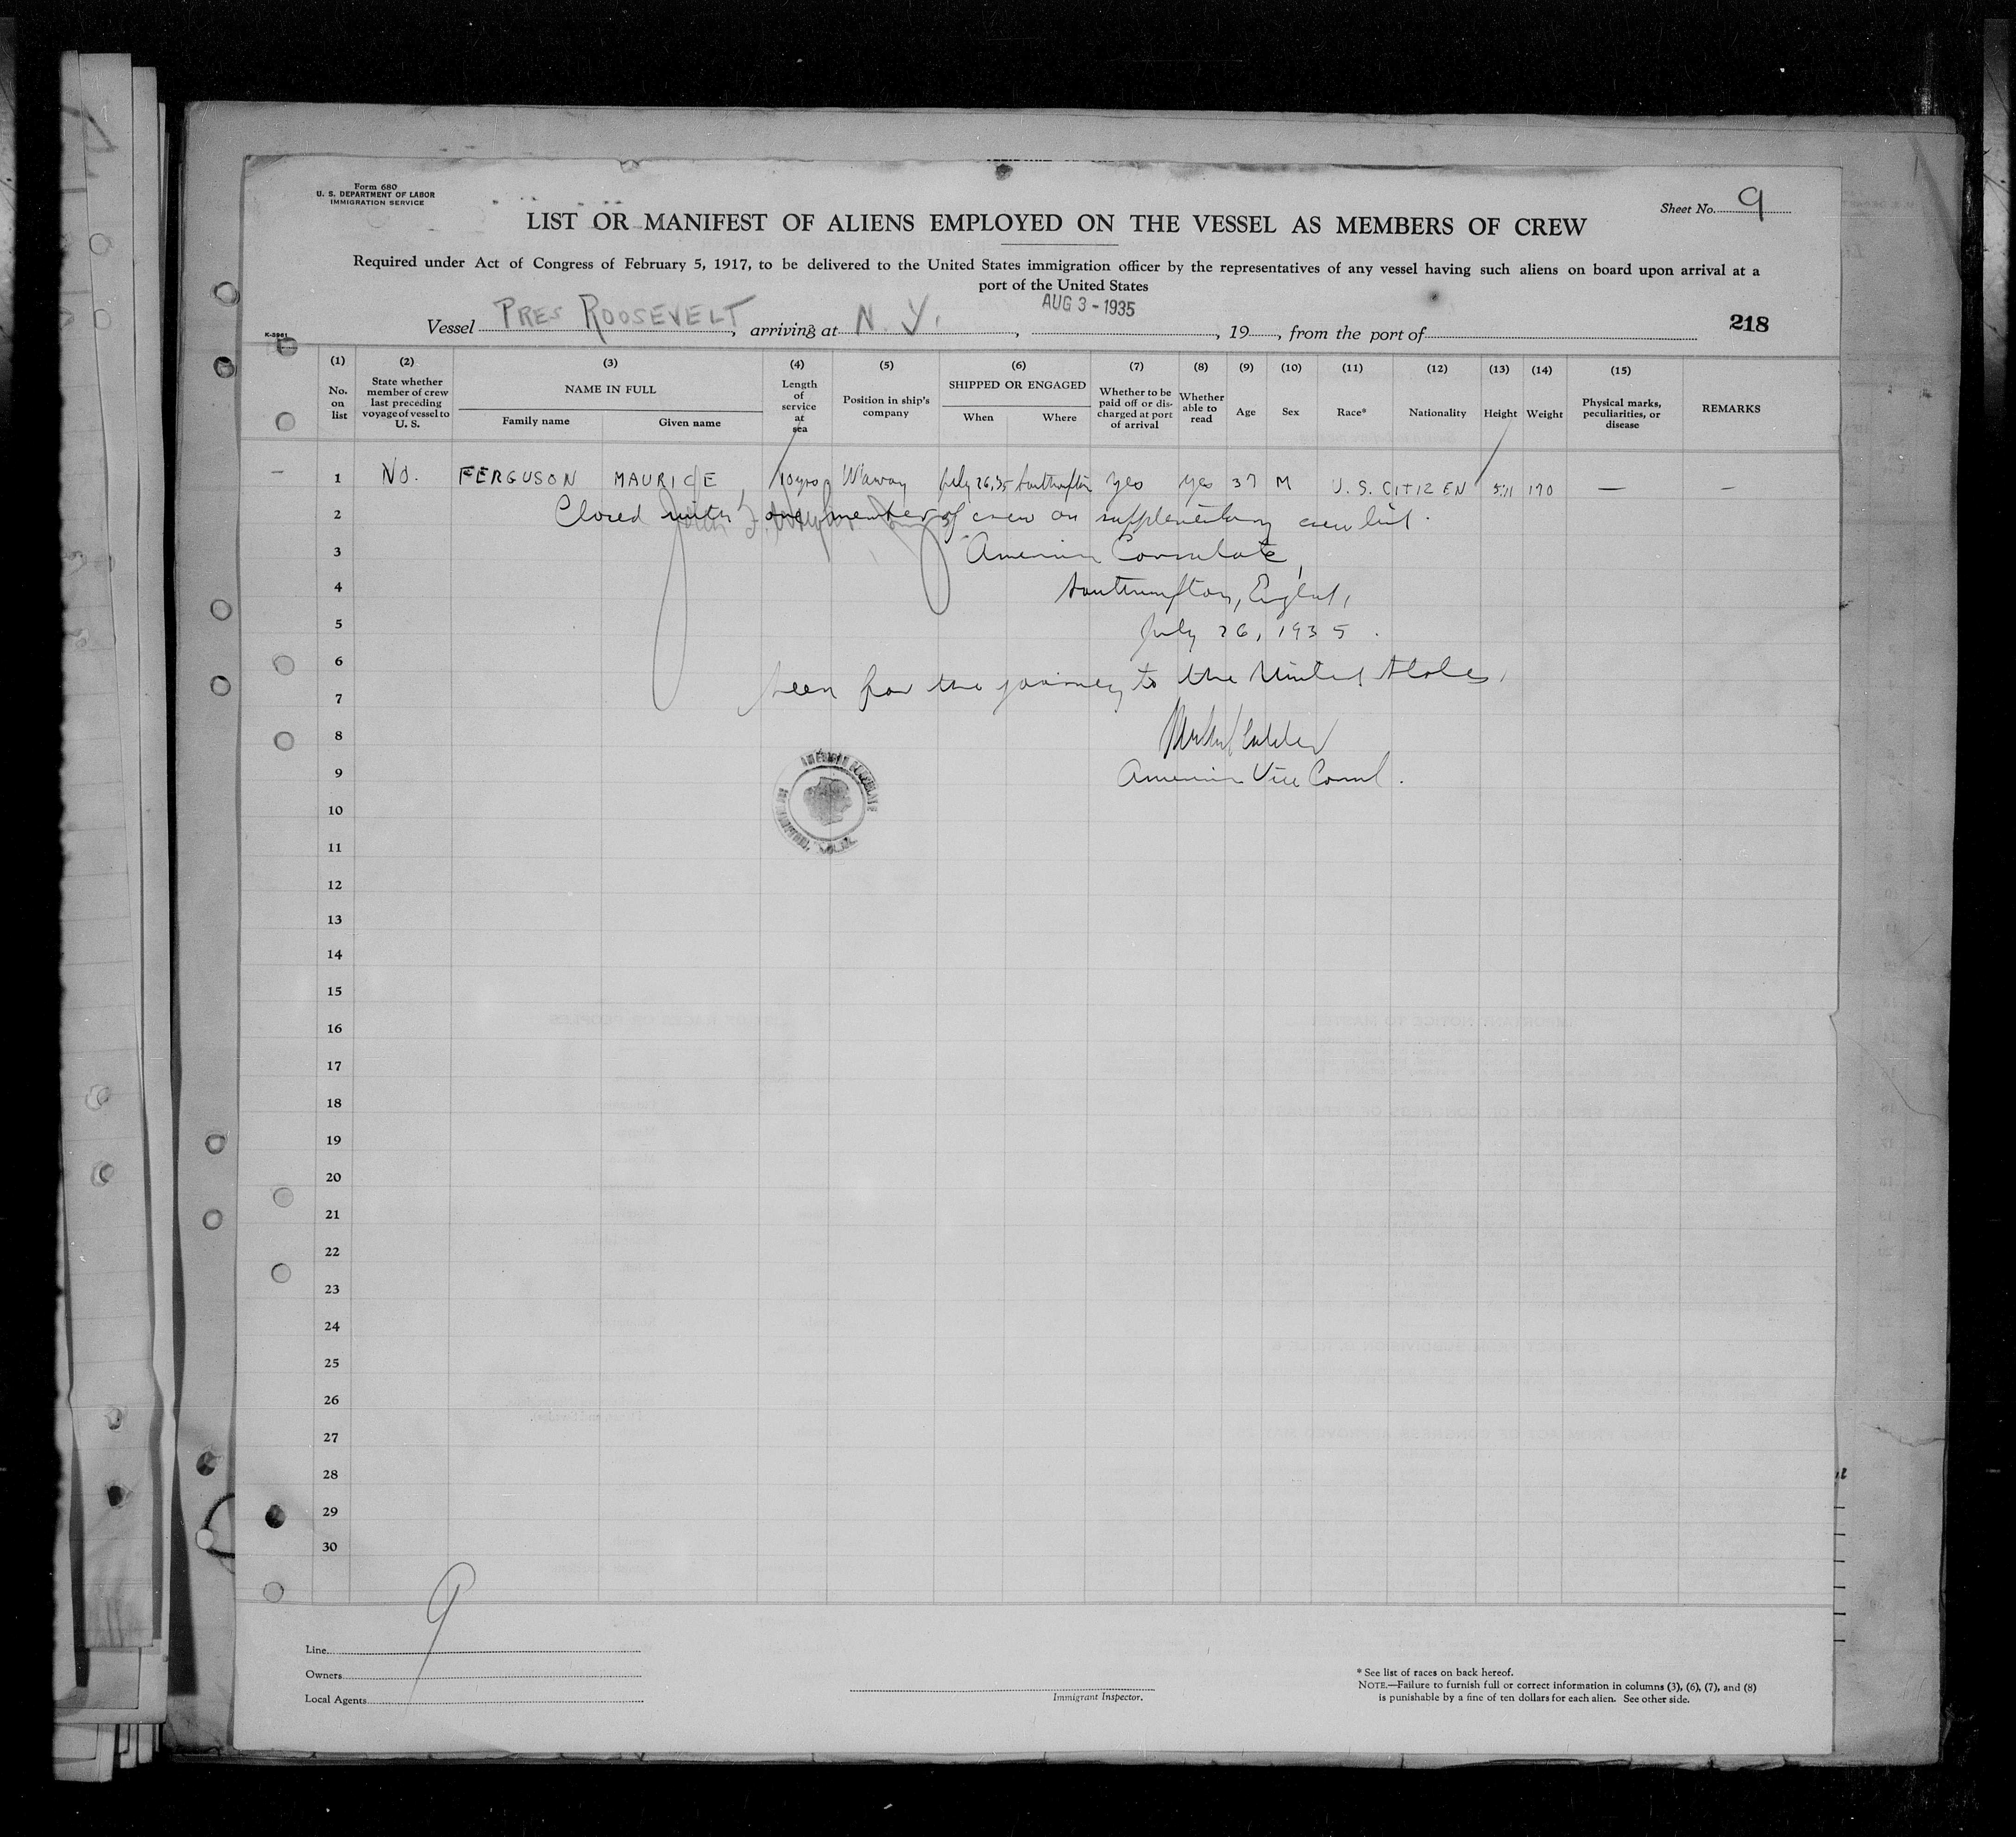 Form 680
U. S. DEPARTMENT OF LABOR
IMMIGRATION SERVICE
Sheet No. 9
LIST OR MANIFEST OF ALIENS EMPLOYED ON THE VESSEL AS MEMBERS OF CREW
Required under Act of Congress of February 5, 1917, to be delivered to the United States immigration officer by the representatives of any vessel having such aliens on board upon arrival at a
port of the United States
Vessel PRES ROOSEVELT, arriving at N. Y., AUG 3 - 1935, 19, from the port of
218
K-5961
(1) (2) (3) (4) (5) (6) (7) (8) (9) (10) (11) (12) (13) (14) (15)
No. on list
State whether member of crew last preceding voyage of vessel to U. S.
NAME IN FULL
Family name Given name
Length of service at sea
Position in ship's company
SHIPPED OR ENGAGED
When Where
Whether to be paid off or discharged at port of arrival
Whether able to read
Age
Sex
Race*
Nationality
Height
Weight
Physical marks, peculiarities, or disease
REMARKS
— 1 No. FERGUSON MAURICE 10 yrs W'away July 26, 35 Southampton Yes Yes 37 M U. S. CITIZEN 5'11 170 — —
2 Closed with one member of crew on supplementary crew list.
3 American Consulate,
4 Southampton, England,
5 July 26, 1935.
6 Seen for the journey to the United States.
7
8
9 American Vice Consul.
AMERICAN CONSULATE
10
11
12
13
14
15
16
17
18
19
20
21
22
23
24
25
26
27
28
29
30
9
Line
Owners
Local Agents
Immigrant Inspector.
* See list of races on back hereof.
NOTE.—Failure to furnish full or correct information in columns (3), (6), (7), and (8)
is punishable by a fine of ten dollars for each alien. See other side.